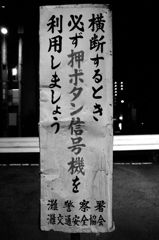 横断するとき
必ず押ボタン信号機を
利用しましょう
灘警察署
灘交通安全協会